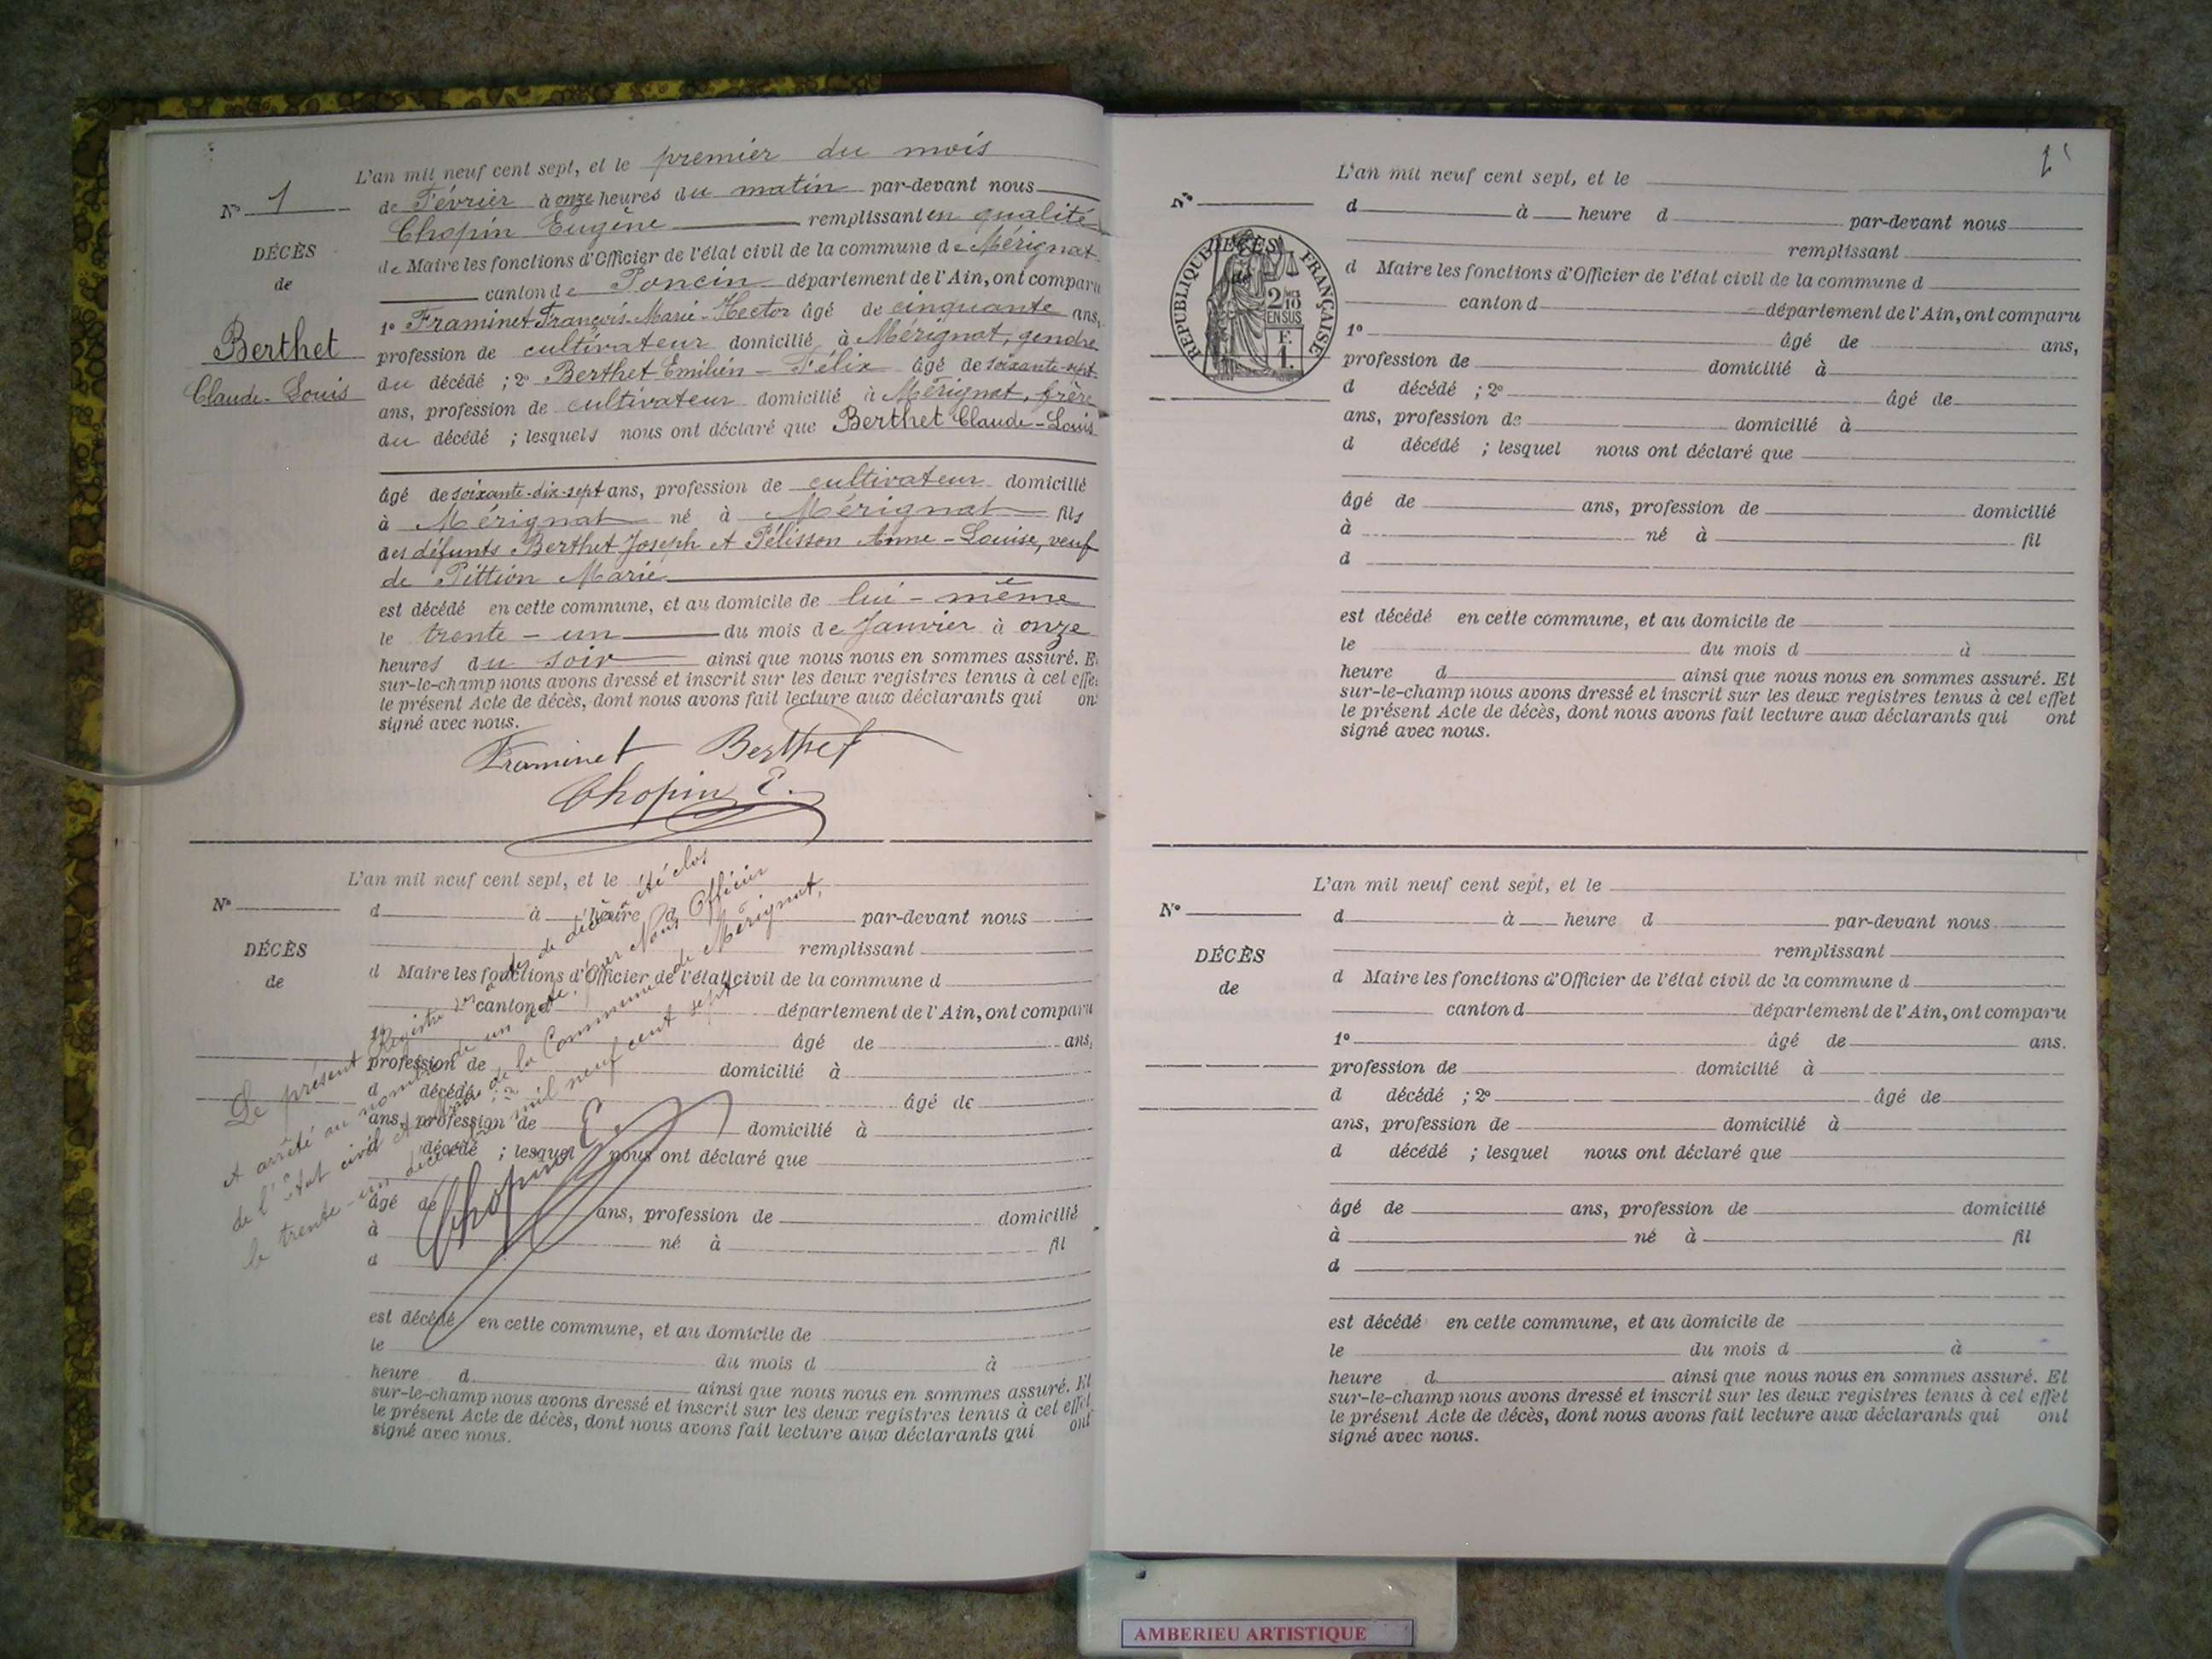 L'an mil neuf cent sept, et le premier du mois
de Février à onze heures du matin par-devant nous
Chopin Eugène remplissant en qualité
de Maire les fonctions d'Officier de l'état civil de la commune de Mérignat
canton de Poncin département de l'Ain, ont comparu
1º Framinet François-Marie-Hector âgé de cinquante ans,
profession de cultivateur domicilié à Mérignat, gendre
du décédé ; 2º Berthet Emilien-Félix âgé de soixante-sept
ans, profession de cultivateur domicilié à Mérignat, frère
du décédé ; lesquels nous ont déclaré que Berthet Claude-Louis
âgé de soixante-dix-sept ans, profession de cultivateur domicilié
à Mérignat né à Mérignat fils
des défunts Berthet Joseph et Pélisson Anne-Louise, veuf
de Pittion Marie
est décédé en cette commune, et au domicile de lui-même
le trente-un du mois de Janvier à onze
heures du soir ainsi que nous nous en sommes assuré. E
sur-le-champ nous avons dressé et inscrit sur les deux registres tenus à cet effe
le présent Acte de décès, dont nous avons fait lecture aux déclarants qui on
signé avec nous.
Framinet Berthet
Chopin E.
Nº 1
DÉCÈS
de
Berthet
Claude-Louis
L'an mil neuf cent sept, et le
d à heure d par-devant nous
remplissant
d Maire les fonctions d'Officier de l'état civil de la commune d
canton d département de l'Ain, ont comparu
1º âgé de ans,
profession de domicilié à
d décédé ; 2º âgé de
ans, profession de domicilié à
d décédé ; lesquel nous ont déclaré que
âgé de ans, profession de domicilié
à né à fil
d
est décédé en cette commune, et au domicile de
le du mois d à
heure d ainsi que nous nous en sommes assuré. Et
sur-le-champ nous avons dressé et inscrit sur les deux registres tenus à cet effet
le présent Acte de décès, dont nous avons fait lecture aux déclarants qui ont
signé avec nous.
Nº
DÉCÈS
de
Le présent Registre des actes de décès a été clos
et arrêté au nombre de un acte, par Nous Officier
de l'état civil de la Commune de Mérignat,
le trente-un décembre mil neuf cent sept
Chopin E.
2
L'an mil neuf cent sept, et le
d à heure d par-devant nous
remplissant
d Maire les fonctions d'Officier de l'état civil de la commune d
canton d département de l'Ain, ont comparu
1º âgé de ans,
profession de domicilié à
d décédé ; 2º âgé de
ans, profession de domicilié à
d décédé ; lesquel nous ont déclaré que
âgé de ans, profession de domicilié
à né à fil
d
est décédé en cette commune, et au domicile de
le du mois d à
heure d ainsi que nous nous en sommes assuré. Et
sur-le-champ nous avons dressé et inscrit sur les deux registres tenus à cet effet
le présent Acte de décès, dont nous avons fait lecture aux déclarants qui ont
signé avec nous.
Nº
DÉCÈS
de
RÉPUBLIQUE FRANÇAISE
2/10
EN SUS
F.
1.
L'an mil neuf cent sept, et le
d à heure d par-devant nous
remplissant
d Maire les fonctions d'Officier de l'état civil de la commune d
canton d département de l'Ain, ont comparu
1º âgé de ans.
profession de domicilié à
d décédé ; 2º âgé de
ans, profession de domicilié à
d décédé ; lesquel nous ont déclaré que
âgé de ans, profession de domicilié
à né à fil
d
est décédé en cette commune, et au domicile de
le du mois d à
heure d ainsi que nous nous en sommes assuré. Et
sur-le-champ nous avons dressé et inscrit sur les deux registres tenus à cet effet
le présent Acte de décès, dont nous avons fait lecture aux déclarants qui ont
signé avec nous.
Nº
DÉCÈS
de
AMBERIEU ARTISTIQUE